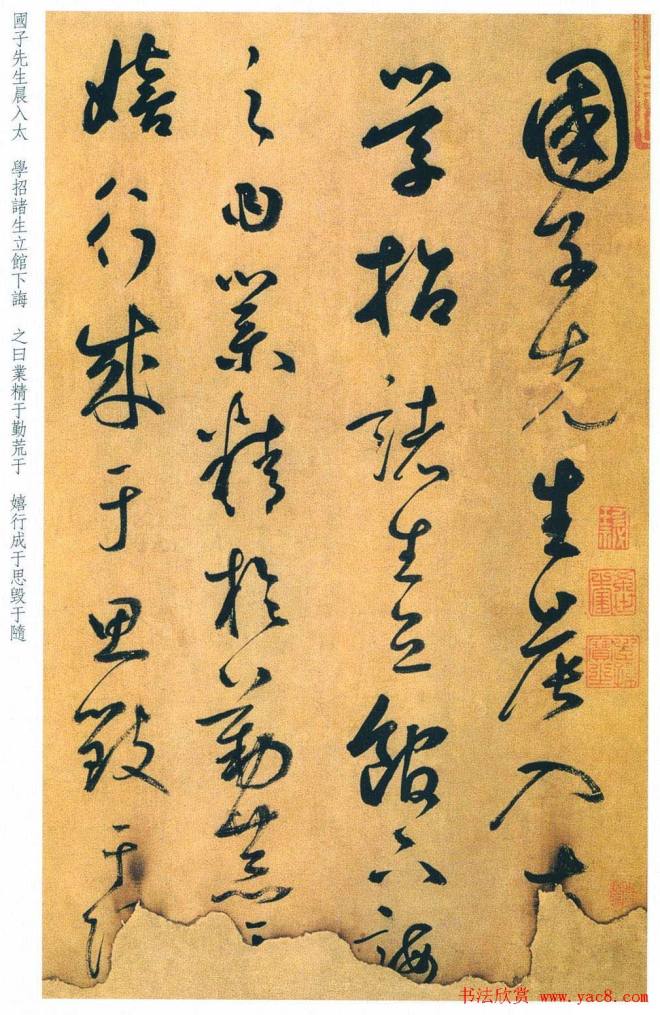 國子先生晨入太
學招諸生立館下誨
之曰業精於勤荒于
嬉行成于思毀于
國子先生晨入太 學招諸生立館下誨 之曰業精于勤荒于 嬉行成于思毀于隨
书法欣赏 www.yac8.com